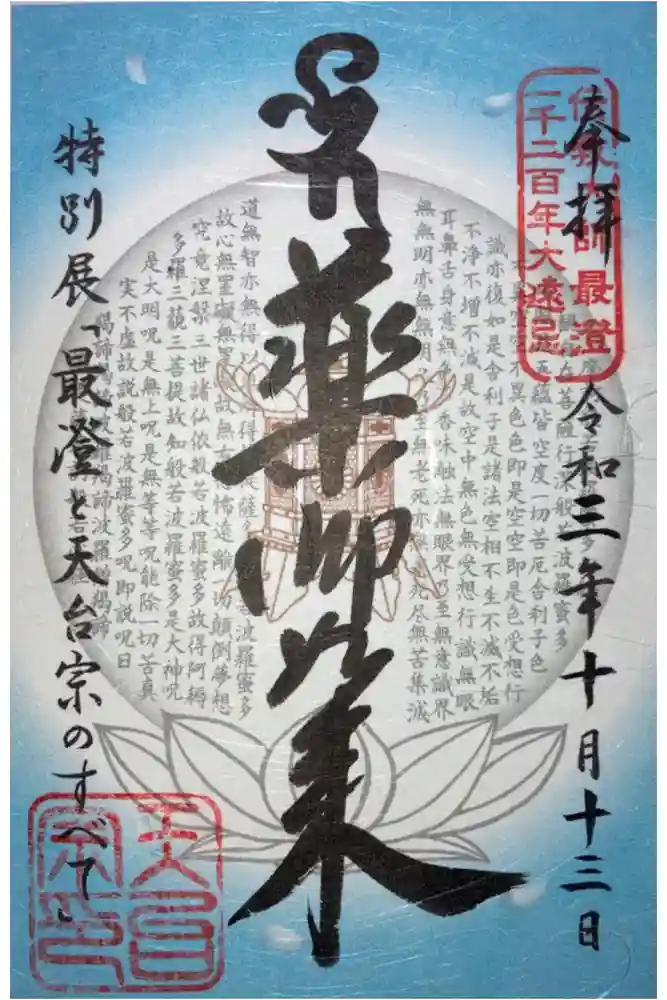 奉拝 令和三年十月十三日
伝教大師最澄
一千二百年大遠忌
薬師如来
特別展「最澄と天台宗のすべて」
天台
宗印
在菩薩行深般若波羅蜜多
五蘊皆空度一切苦厄舎利子色
異空空不異色色即是空空即是色受想行
識亦復如是舎利子是諸法空相不生不滅不垢
不浄不増不減是故空中無色無受想行識無眼
耳鼻舌身意無色声香味触法無眼界乃至無意識界
無無明亦無無明尽乃至無老死亦無老死尽無苦集滅
道無智亦無得以無所得故菩提薩埵依般若波羅蜜多
故心無罣礙無罣礙故無有恐怖遠離一切顛倒夢想
究竟涅槃三世諸仏依般若波羅蜜多故得阿耨
多羅三藐三菩提故知般若波羅蜜多是大神呪
是大明呪是無上呪是無等等呪能除一切苦真
実不虚故説般若波羅蜜多呪即説呪曰
羯諦羯諦波羅羯諦波羅僧羯諦